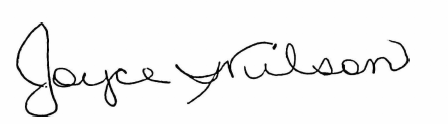 Joyce Wilson